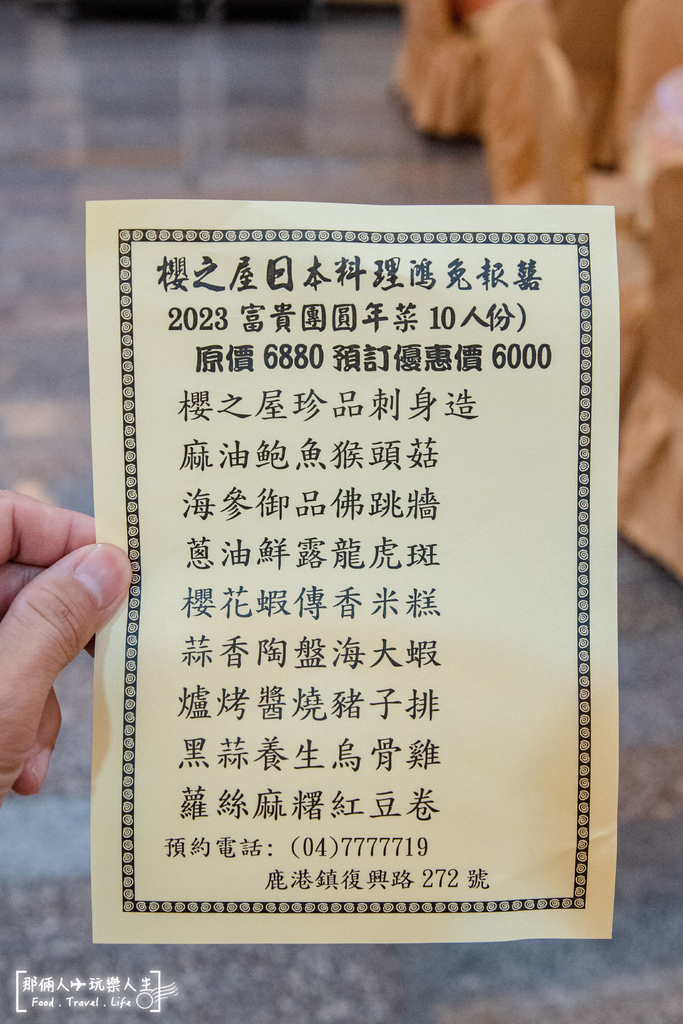 櫻之屋日本料理鴻兔報囍
2023 富貴團圓年菜 10人份）
原價 6880 預訂優惠價 6000
櫻之屋珍品刺身造
麻油鮑魚猴頭菇
海參御品佛跳牆
蔥油鮮露龍虎斑
櫻花蝦傳香米糕
蒜香陶盤海大蝦
爐烤醬燒豬子排
黑蒜養生烏骨雞
蘿絲麻糬紅豆卷
預約電話: (04)7777719
鹿港鎮復興路 272 號
那倆人✈玩樂人生
Food . Travel . Life